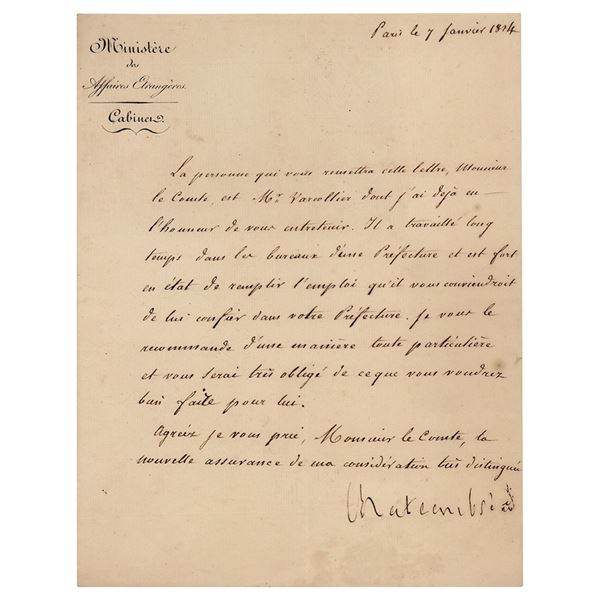 Paris le 7 Janvier 1824
Ministère
des
Affaires Etrangères.
Cabinet.
La personne qui vous remettra cette lettre, Monsieur
le Comte, est Mr. Varcollier dont j'ai dejà eu
l'honneur de vous entretenir. Il a travaillé long
temps dans les bureaux d'une Préfecture et est fort
en état de remplir l'emploi qu'il vous conviendroit
de lui confier dans votre Préfecture. Je vous le
recommande d'une manière toute particulière
et vous serai très obligé de ce que vous voudrez
bien faire pour lui.
Agréez je vous prie, Monsieur le Comte, la
nouvelle assurance de ma considération très distinguée
Chateaubriand